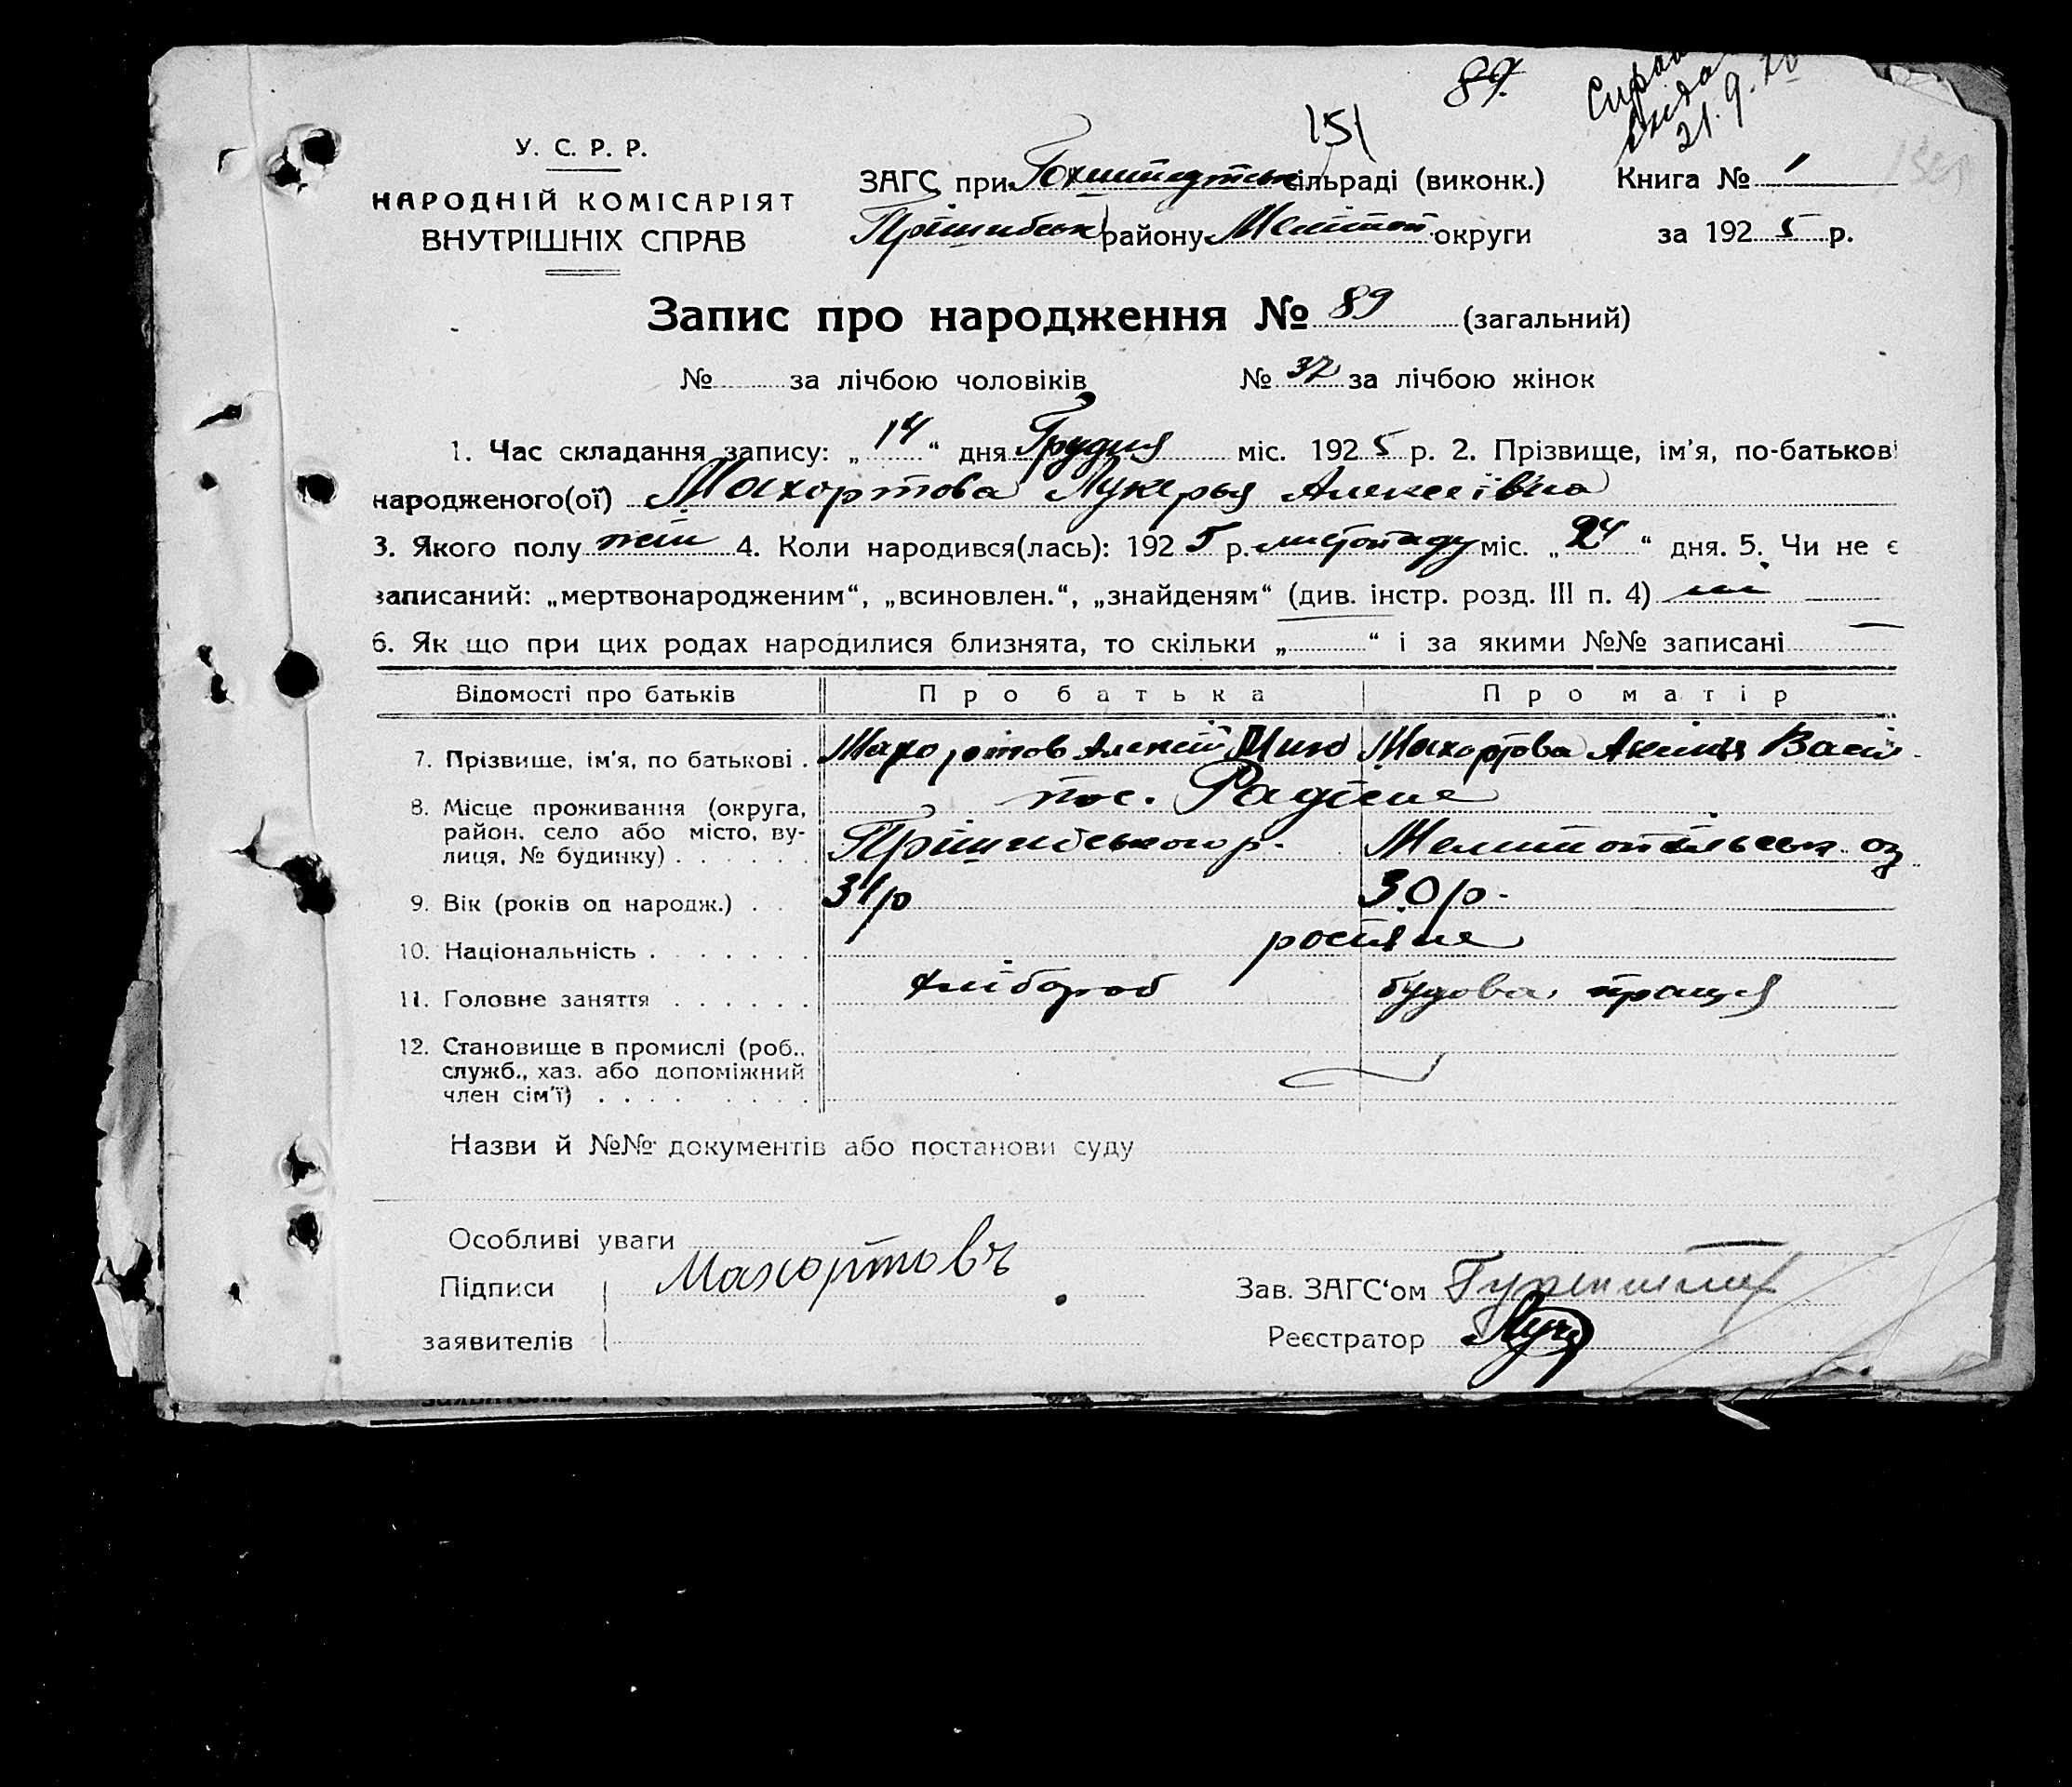 89.
151
21.9.
У. С. Р. Р.
НАРОДНІЙ КОМІСАРІЯТ
ВНУТРІШНІХ СПРАВ
ЗАГС при Гохштедтськ сільраді (виконк.) Книга № 1
Пришибськ району Мелітоп. округи за 1925 р.
Запис про народження № 89 (загальний)
№ за лічбою чоловіків № 37 за лічбою жінок
1. Час складання запису: „14“ дня Грудня міс. 1925 р. 2. Прізвище, ім'я, по-батькові
народженого(ої) Махортова Лукерья Алексеівна
3. Якого полу жін 4. Коли народився(лась): 1925 р. листопаду міс. „24“ дня. 5. Чи не є
записаний: „мертвонародженим“, „всиновлен.“, „знайденям“ (див. інстр. розд. III п. 4) ні
6. Як що при цих родах народилися близнята, то скільки „ “ і за якими №№ записані
Відомості про батьків Про батька Про матір
7. Прізвище, ім'я, по батькові . Махортов Алексій Махортова Васил
8. Місце проживання (округа, пос. Радівне
район, село або місто, ву- Пришибського р. Мелитопільськ ок
лиця, № будинку) . . . . . .
9. Вік (років од народж.) . . 31 р 30 р.
10. Національність . . . . . . . росіяне
11. Головне заняття . . . . . . хлібороб будова праця
12. Становище в промислі (роб.,
служб., хаз. або допоміжний
член сім'ї) . . . . . . . .
Назви й №№ документів або постанови суду
Особливі уваги
Підписи Махортовъ Зав. ЗАГС'ом
заявителів Реєстратор